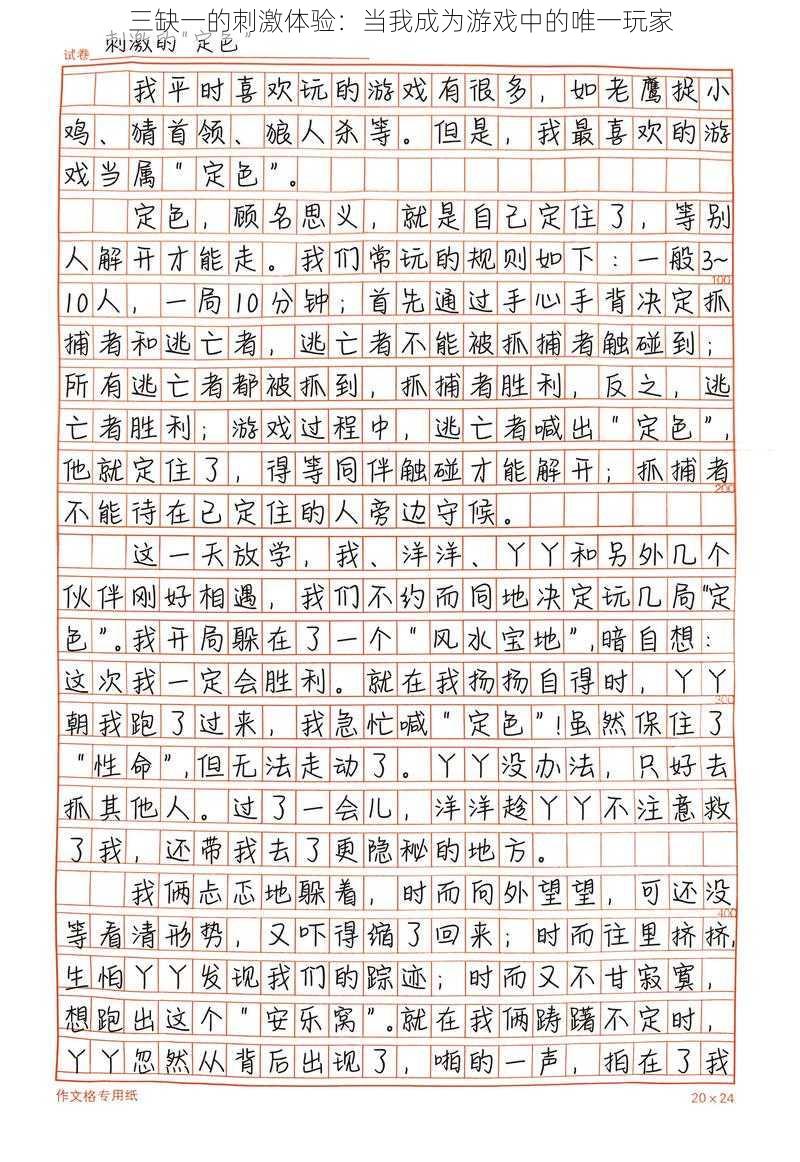 三缺一的刺激体验：当我成为游戏中的唯一玩家
试卷 刺激的“定色”
我平时喜欢玩的游戏有很多，如老鹰捉小
鸡、猜首领、狼人杀等。但是，我最喜欢的游
戏当属“定色”。
定色，顾名思义，就是自己定住了，等别
人解开才能走。我们常玩的规则如下：一般3~
100
10人，一局10分钟；首先通过手心手背决定抓
捕者和逃亡者，逃亡者不能被抓捕者触碰到；
所有逃亡者都被抓到，抓捕者胜利，反之，逃
亡者胜利；游戏过程中，逃亡者喊出“定色”，
他就定住了，得等同伴触碰才能解开；抓捕者
200
不能待在已定住的人旁边守候。
这一天放学，我、洋洋、丫丫和另外几个
伙伴刚好相遇，我们不约而同地决定玩几局“定
色”。我开局躲在了一个“风水宝地”，暗自想：
这次我一定会胜利。就在我扬扬自得时，丫丫
300
朝我跑了过来，我急忙喊“定色”！虽然保住了
“性命”，但无法走动了。丫丫没办法，只好去
抓其他人。过了一会儿，洋洋趁丫丫不注意救
了我，还带我去了更隐秘的地方。
我俩忐忑地躲着，时而向外望望，可还没
400
等看清形势，又吓得缩了回来；时而往里挤挤，
生怕丫丫发现我们的踪迹；时而又不甘寂寞，
想跑出这个“安乐窝”。就在我俩踌躇不定时，
丫丫忽然从背后出现了，啪的一声，拍在了我
作文格专用纸 20×24